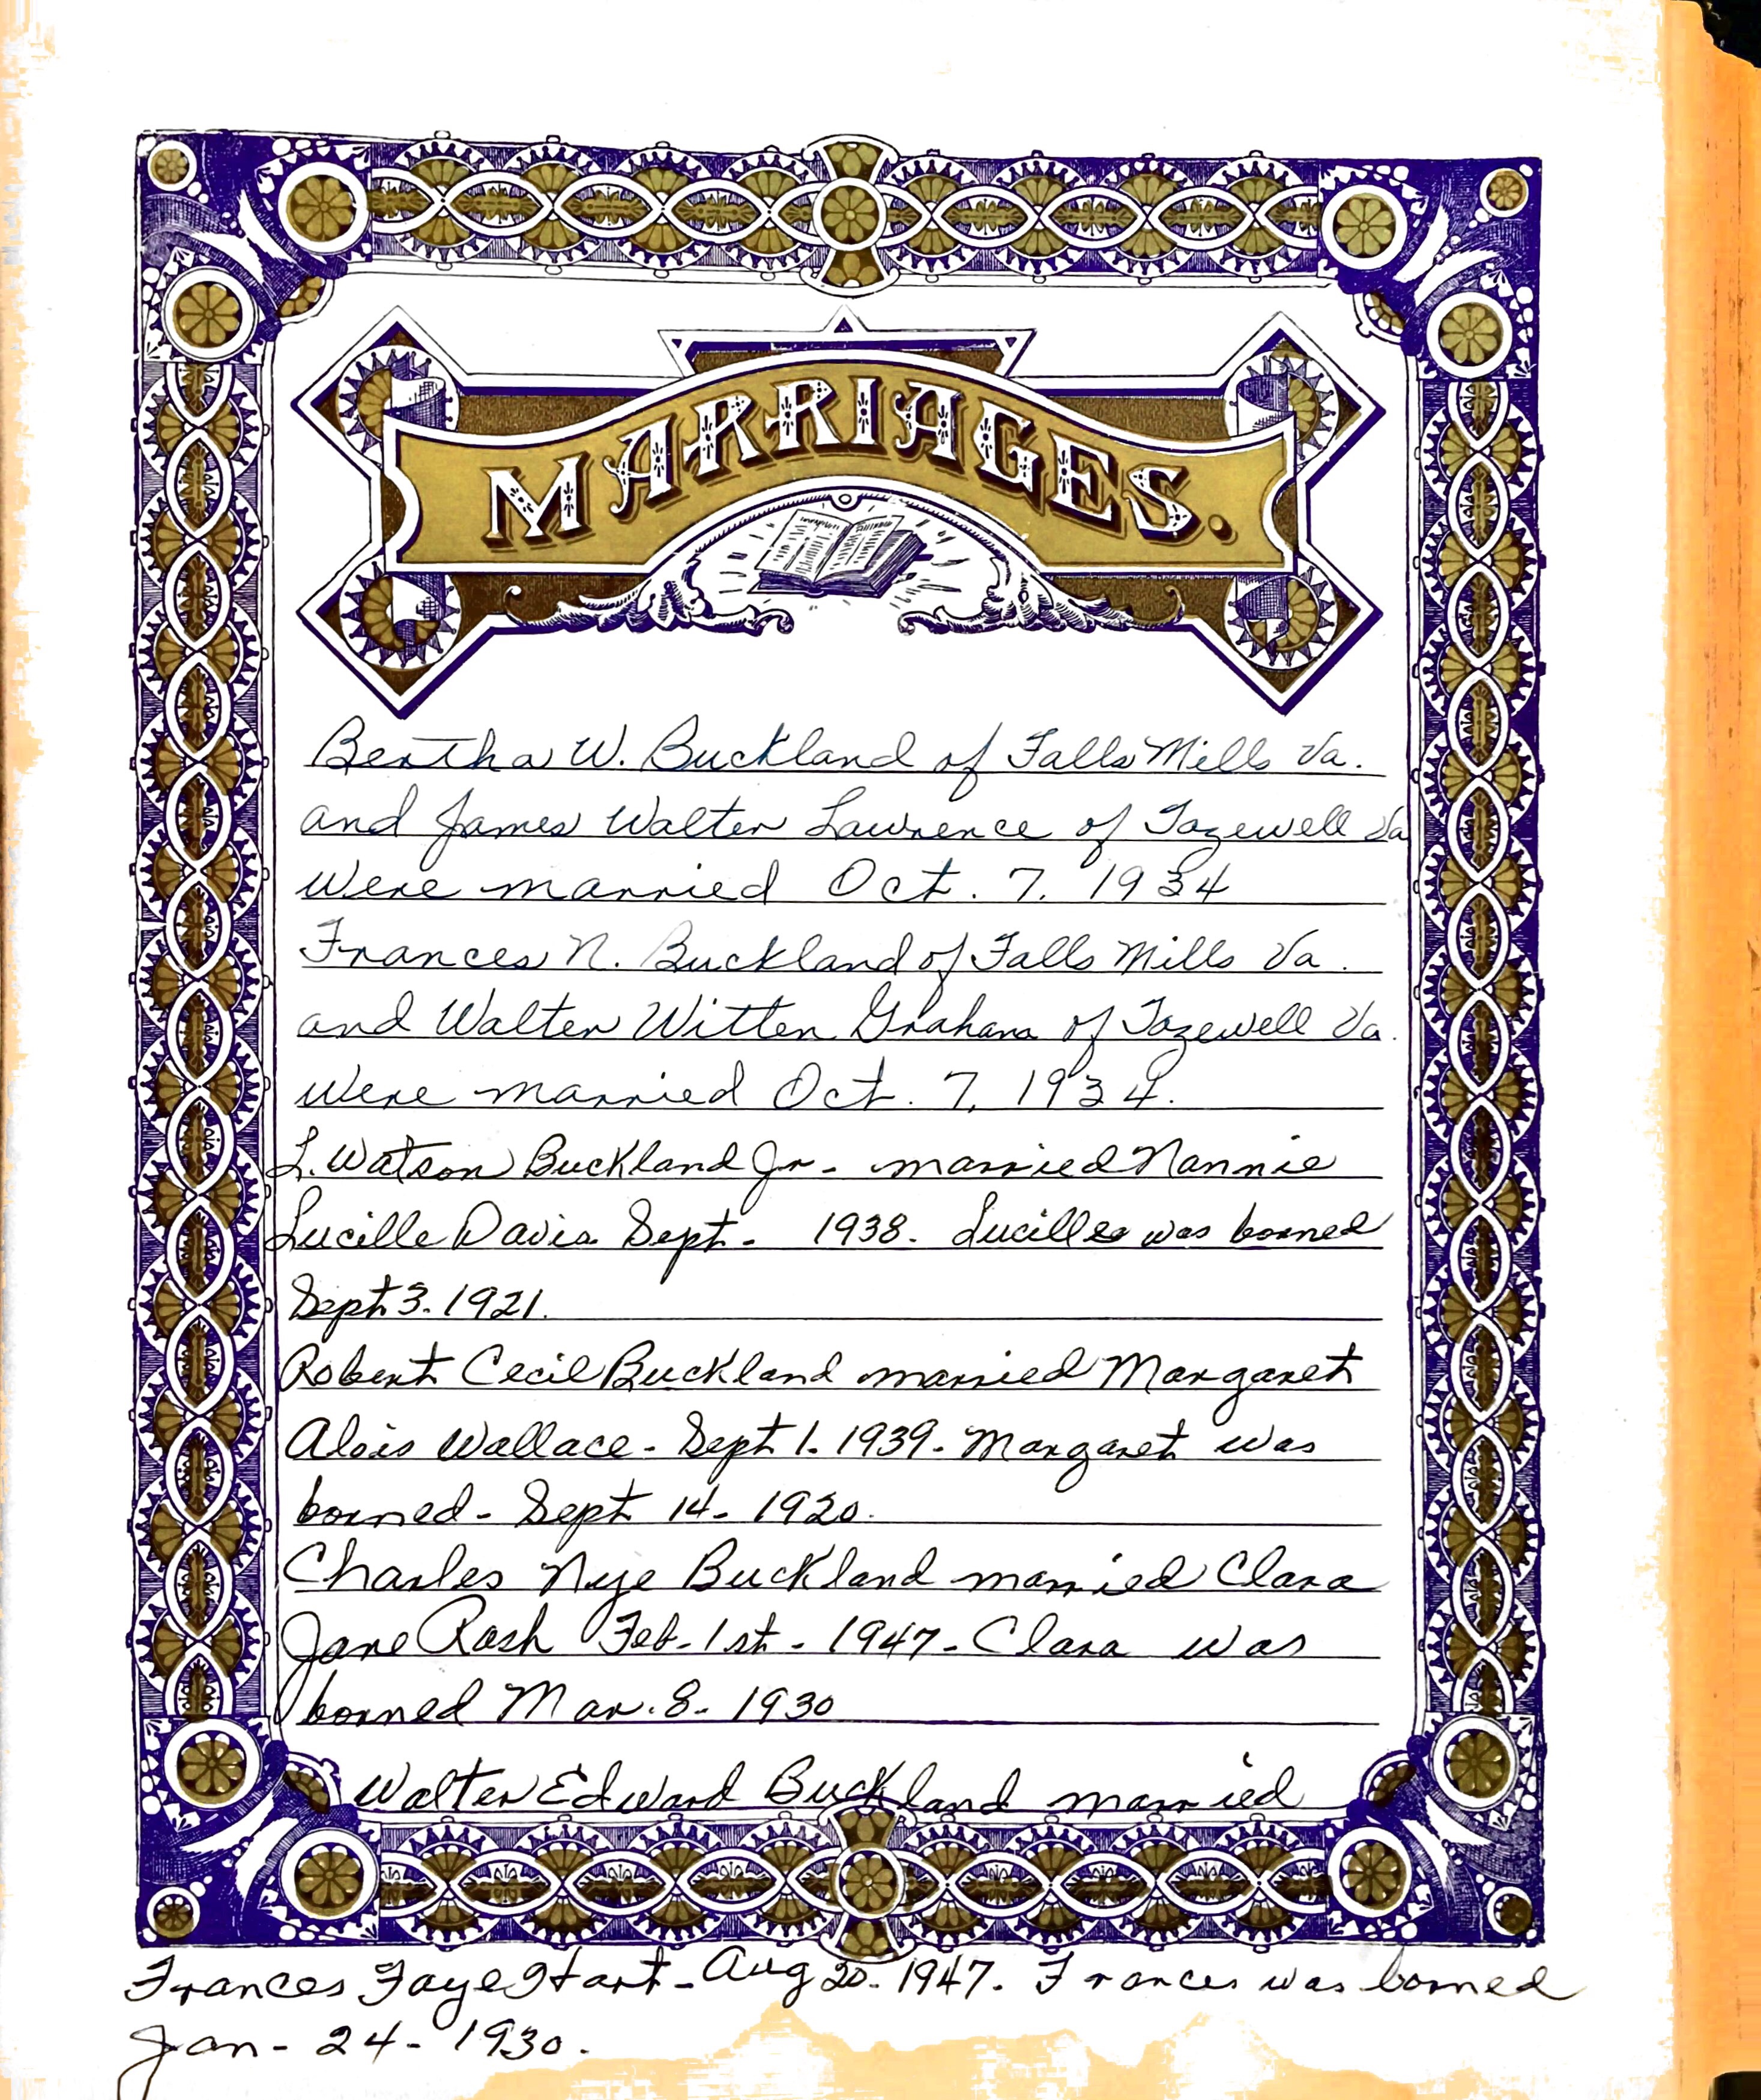 MARRIAGES.
Bertha W. Buckland of Falls Mills Va.
and James Walter Lawrence of Tazewell Va
were married Oct. 7, 1934
Frances N. Buckland of Falls Mills Va.
and Walter Witten Graham of Tazewell Va.
were married Oct. 7, 1934.
L. Watson Buckland Jr. - married Nannie
Lucille Davis Sept. - 1938. Lucille was borned
Sept 3. 1921.
Robert Cecil Buckland married Margaret
Alois Wallace - Sept 1. 1939. Margaret was
borned - Sept 14 - 1920.
Charles Nye Buckland married Clara
Jane Rash Feb. 1st - 1947 - Clara was
borned Mar. 8 - 1930
Walter Edward Buckland married
Frances Faye Hart - Aug 20. 1947. Frances was borned
Jan - 24 - 1930.